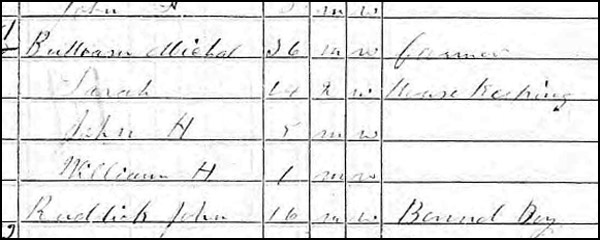 John H 5 m w
1 Buttram Michal 26 m w farmer
Sarah 24 f w House Keeping
John H 5 m w
William H 1 m w
Ruddick John 16 m w Bound Boy